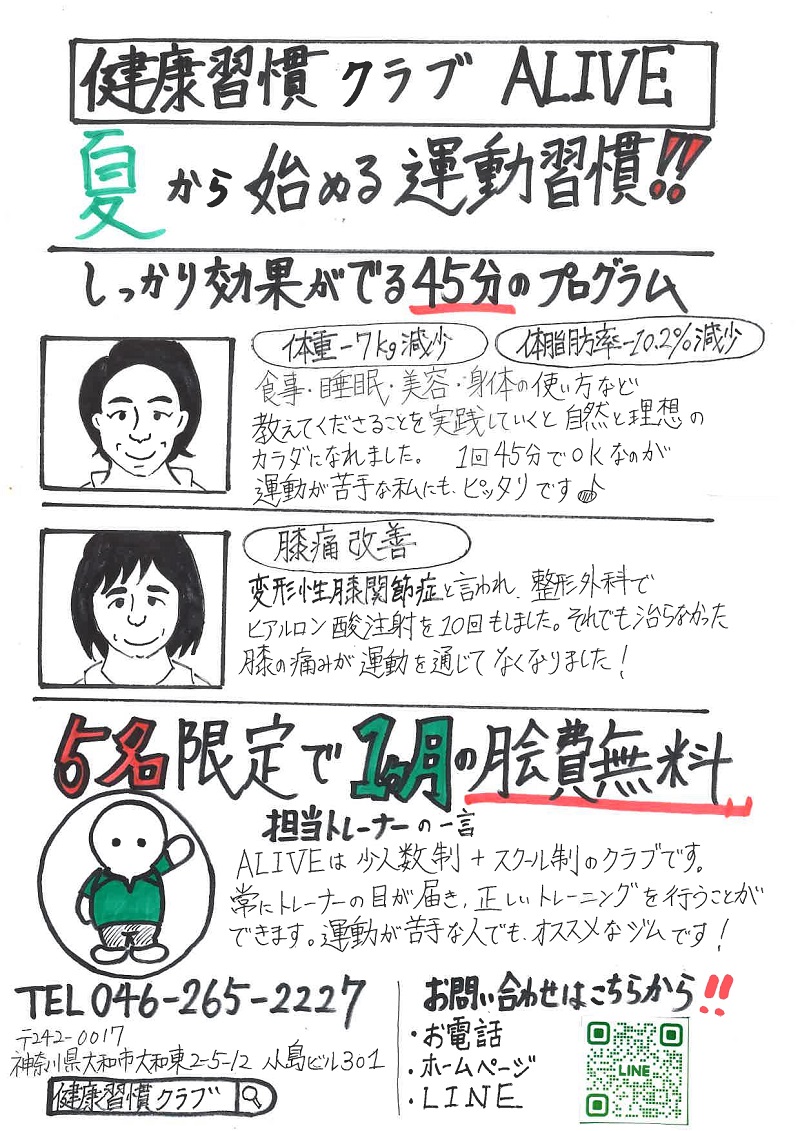 健康習慣クラブ ALIVE
夏から始める運動習慣!!
しっかり効果がでる45分のプログラム
体重-7kg減少
体脂肪率-10.2%減少
食事・睡眠・美容・身体の使い方など
教えてくださることを実践していくと自然と理想の
カラダになれました。 1回45分でOKなのが
運動が苦手な私にも、ピッタリです♪
膝痛改善
変形性膝関節症と言われ、整形外科で
ヒアルロン酸注射を10回もしました。それでも治らなかった
膝の痛みが運動を通じてなくなりました!
5名限定で1ヶ月の月会費無料
担当トレーナーの一言
ALIVEは少人数制+スクール制のクラブです。
常にトレーナーの目が届き、正しいトレーニングを行うことが
できます。運動が苦手な人でも、オススメなジムです!
TEL 046-265-2227
〒242-0017
神奈川県大和市大和東2-5-12 小島ビル301
健康習慣クラブ
お問い合わせはこちらから!!
・お電話
・ホームページ
・LINE
LINE